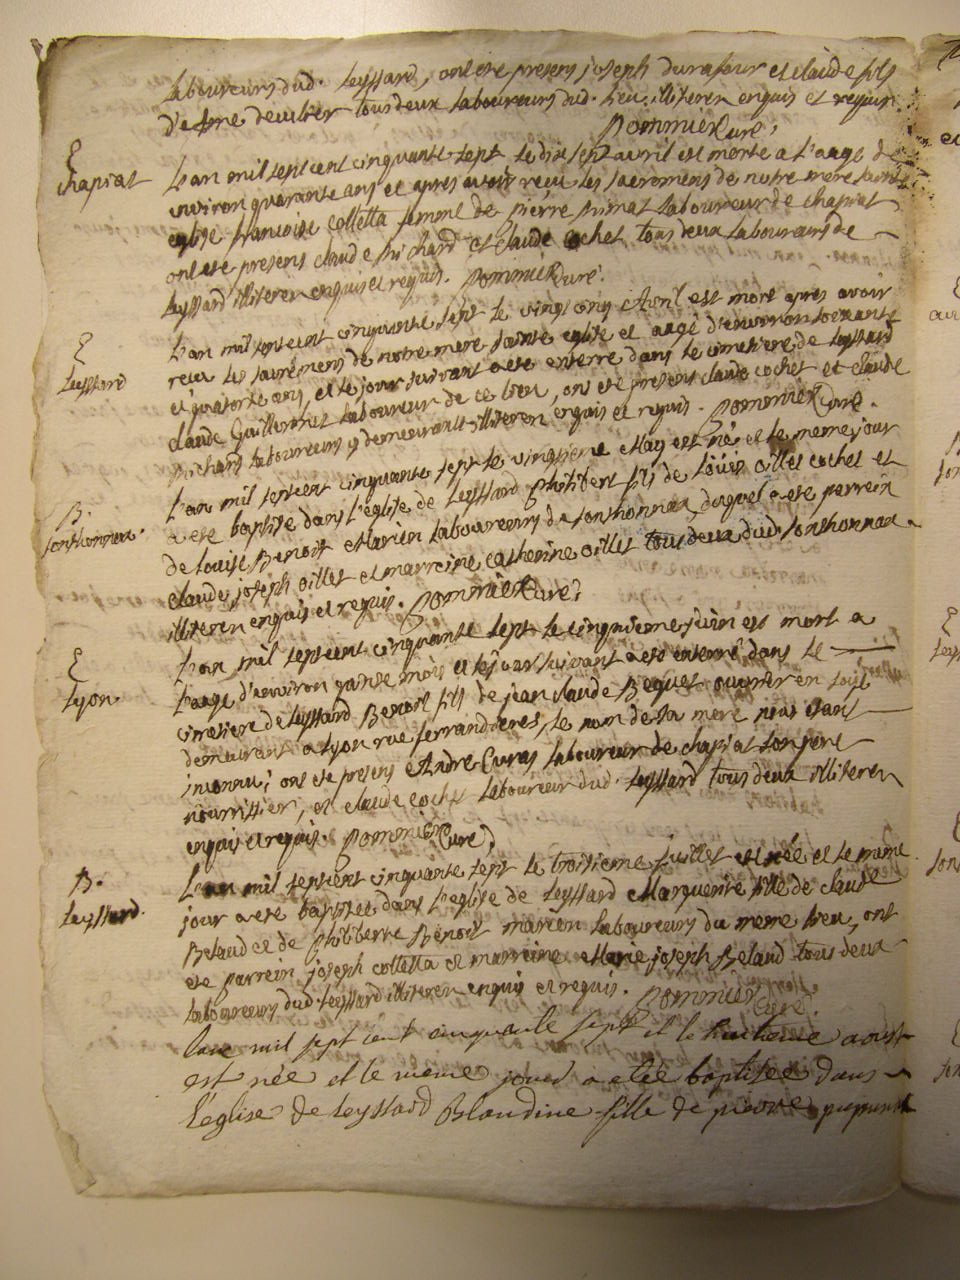 laboureurs dud. Leyssard, ont été presens joseph durafour et claude fils
d'efme deulier tous deux laboureurs dud. lieu, illiteren enquis et requis
Pommier Curé,
E
chapiat
L'an mil sept cent cinquante sept le dix sept avril est morte a l'aage de
environ quarante ans et apres avoir reçu les sacremens de notre mere sainte
eglise francoise colletta femme de pierre primat laboureur de chapiat
ont été presens claude prichard et claude cochet tous deux laboureurs de
Leyssard illiteren enquis et requis. Pommier Curé.
E
Leyssard
L'an mil sept cent cinquante sept le vingt cinq Avril est mort apres avoir
reçu les sacremens de notre mere sainte eglise et aagé d'environ soixante
et quatorze ans, et le jour suivant a été enterré dans le cimetiere de Leyssard
claude Guillermet laboureur de ce lieu, ont été presens claude cochet et claude
prichard laboureurs y demeurants illiteren enquis et requis. Pommier Curé.
B.
sonthonnax.
L'an mil sept cent cinquante sept le vingtieme May est né et le meme jour
a été baptisé dans l'eglise de Leyssard philibert fils de Loüis oillet cochet et
de Louise Benoit Mariën laboureurs de sonthonnax, duquel a été parrein
claude joseph oillet et marreine catherine oillet tous deux dud. sonthonnax
illiteren enquis et requis. Pommier Curé,
E
Lyon
L'an mil sept cent cinquante sept le cinquieme juin est mort a
l'aage d'environ quinze mois et le jour suivant a été enterré dans le
cimetiere de Leyssard Benoit fils de jean claude Beguet ouvrier en soie
demeurant a Lyon rue ferrandieres, le nom de sa mere nous etant
inconnu; ont été presens André Curas laboureur de chapiat son pere
nourrissier, et claude cochet laboureur dud. Leyssard tous deux illiteren
enquis et requis. Pommier Curé,
B.
Leyssard.
L'an mil sept cent cinquante sept le troisieme juillet est née et le même
jour a été baptisée dans l'eglise de Leyssard Marguerite fille de claude
Belaud et de philiberte Benoit mariën laboureurs du meme lieu, ont
été parrein joseph colletta et marreine Marie joseph Belaud tous deux
laboureurs dud. Leyssard illiteren enquis et requis. Pommier
Curé.
L'an mil sept cent cinquante sept et le huitieme aoust
est née et le meme jour a eté baptisée dans
l'église de leyssard Blandine fille de pierre